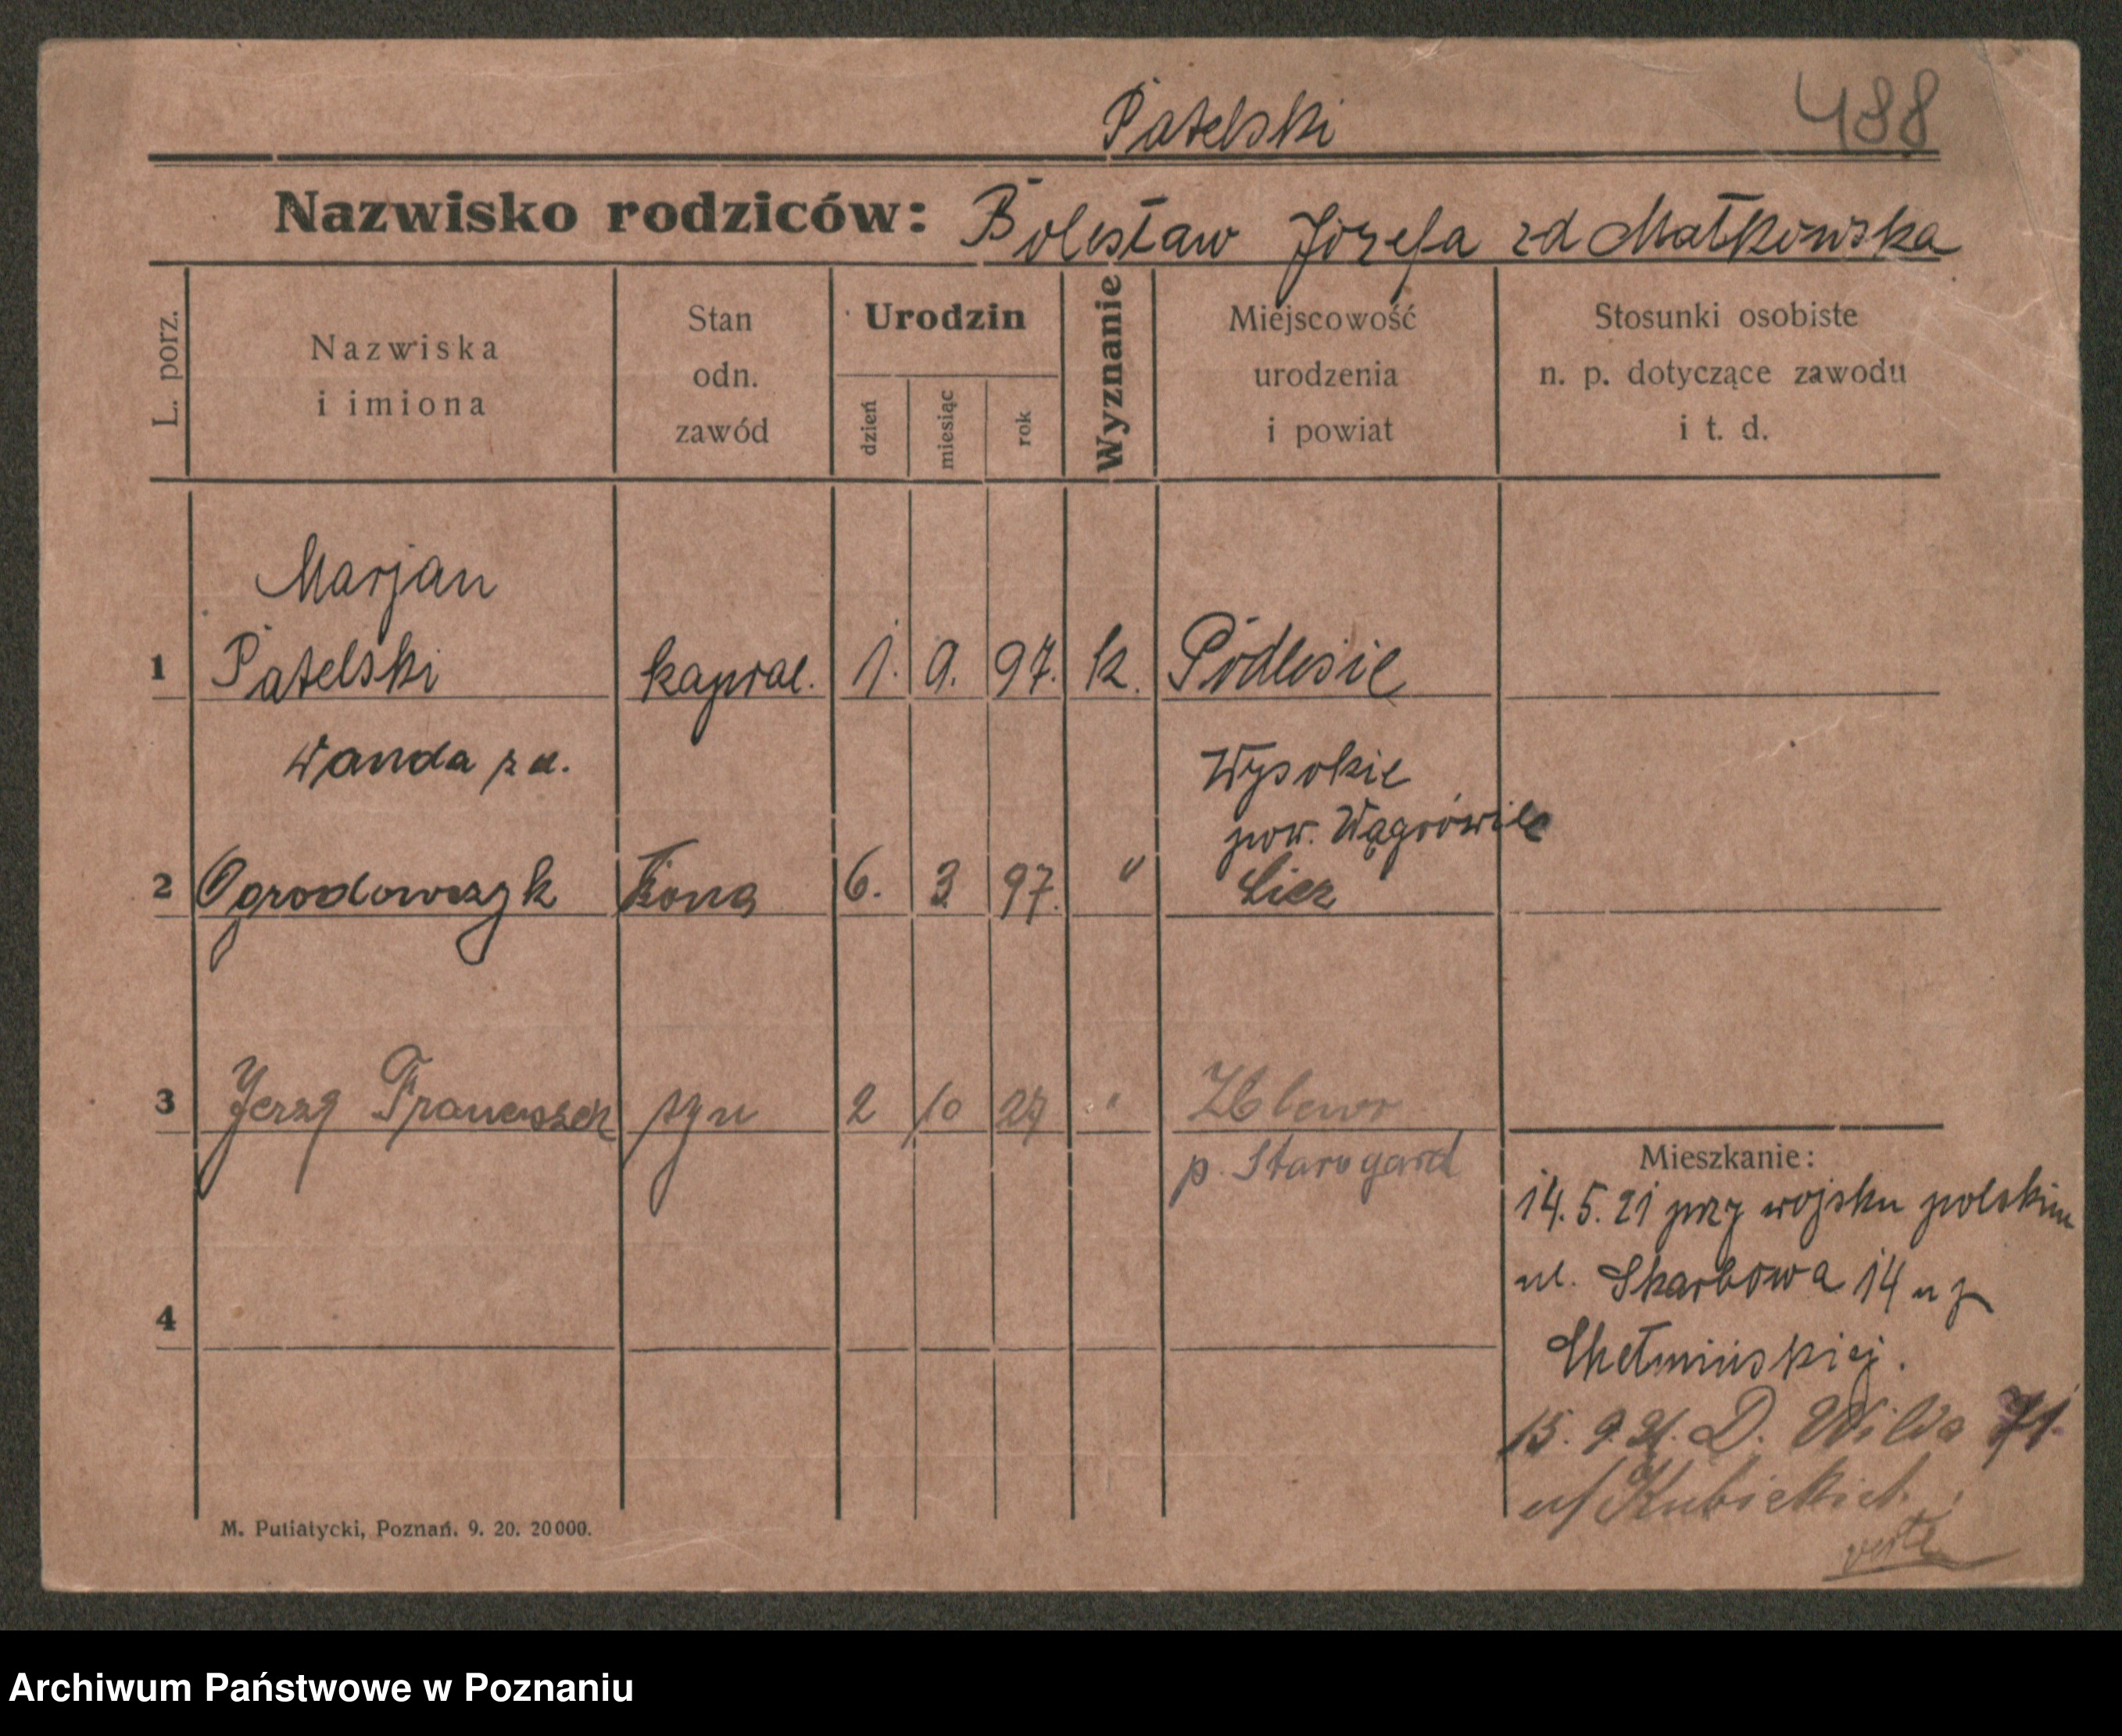 Patelski 488
Nazwisko rodziców: Bolesław Józefa zd Małkowska
L. porz.
Nazwiska
i imiona
Stan
odn.
zawód
Urodzin
dzień
miesiąc
rok
Wyznanie
Miejscowość
urodzenia
i powiat
Stosunki osobiste
n. p. dotyczące zawodu
i t. d.
Marjan
1 Patelski kapral. 1. 9. 97. k. Podlesie
Wysokie
pow. Wągrówiec
Wanda z d.
2 Ogrodowczyk żona 6. 3 97. "
3 Jerzy Franciszek syn 2 10 27 " Zblewo
p. Starogard
4
Mieszkanie:
14. 5. 21 przy wojsku polskim
ul. Skarbowa 14 u p
Chełmińskiej.
15. 9. 21. D. Wilda 71.
u/ Kubickich
verte
M. Putiatycki, Poznań. 9. 20. 20000.
Archiwum Państwowe w Poznaniu